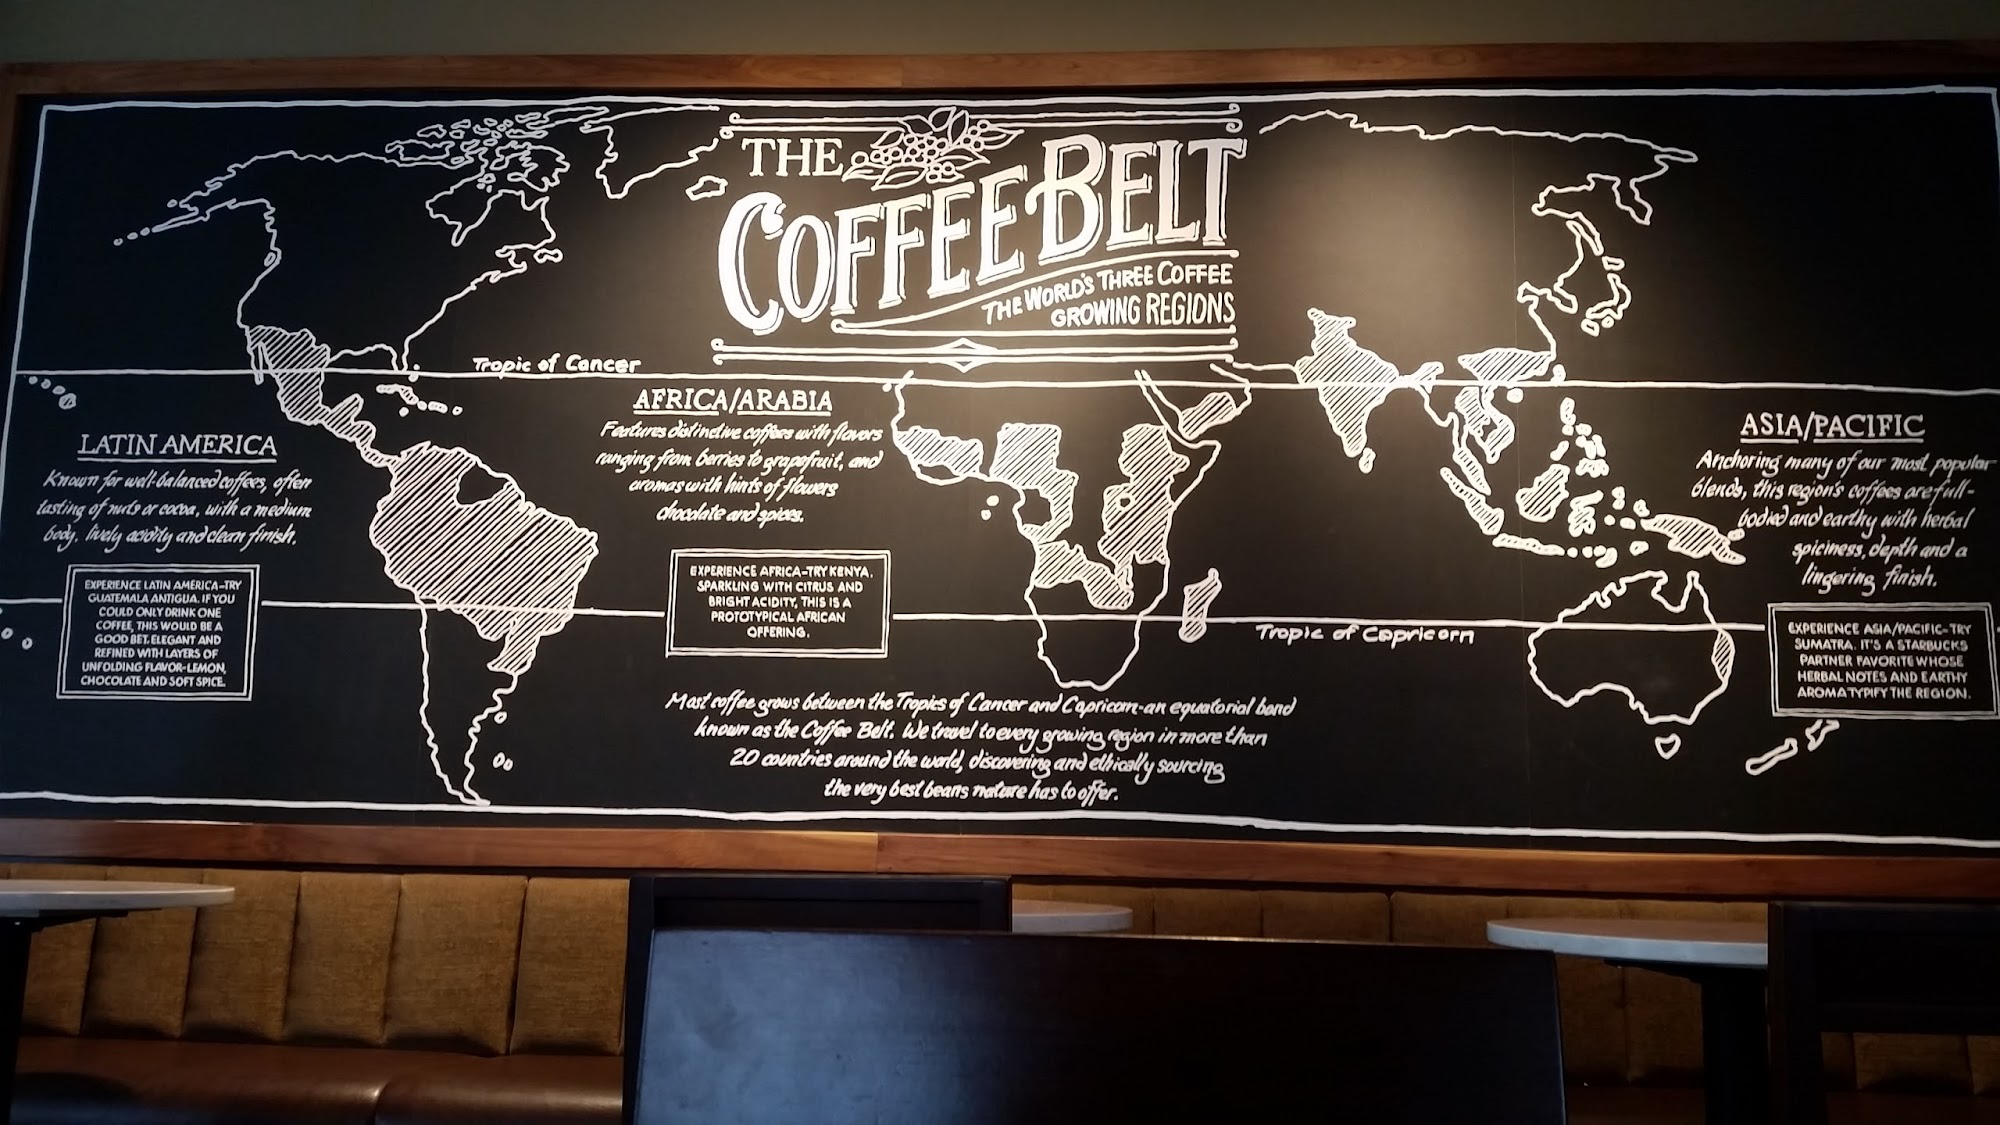 THE
COFFEE BELT
THE WORLD'S THREE COFFEE
GROWING REGIONS
Tropic of Cancer
LATIN AMERICA
Known for well-balanced coffees, often
tasting of nuts or cocoa, with a medium
body, lively acidity and clean finish.
EXPERIENCE LATIN AMERICA-TRY
GUATEMALA ANTIGUA. IF YOU
COULD ONLY DRINK ONE
COFFEE, THIS WOULD BE A
GOOD BET. ELEGANT AND
REFINED WITH LAYERS OF
UNFOLDING FLAVOR-LEMON,
CHOCOLATE AND SOFT SPICE.
AFRICA/ARABIA
Features distinctive coffees with flavors
ranging from berries to grapefruit, and
aromas with hints of flowers
chocolate and spices.
EXPERIENCE AFRICA-TRY KENYA.
SPARKLING WITH CITRUS AND
BRIGHT ACIDITY, THIS IS A
PROTOTYPICAL AFRICAN
OFFERING.
ASIA/PACIFIC
Anchoring many of our most popular
blends, this region's coffees are full-
bodied and earthy with herbal
spiciness, depth and a
lingering finish.
EXPERIENCE ASIA/PACIFIC-TRY
SUMATRA. IT'S A STARBUCKS
PARTNER FAVORITE WHOSE
HERBAL NOTES AND EARTHY
AROMA TYPIFY THE REGION.
Tropic of Capricorn
Most coffee grows between the Tropics of Cancer and Capricorn-an equatorial band
known as the Coffee Belt. We travel to every growing region in more than
20 countries around the world, discovering and ethically sourcing
the very best beans nature has to offer.